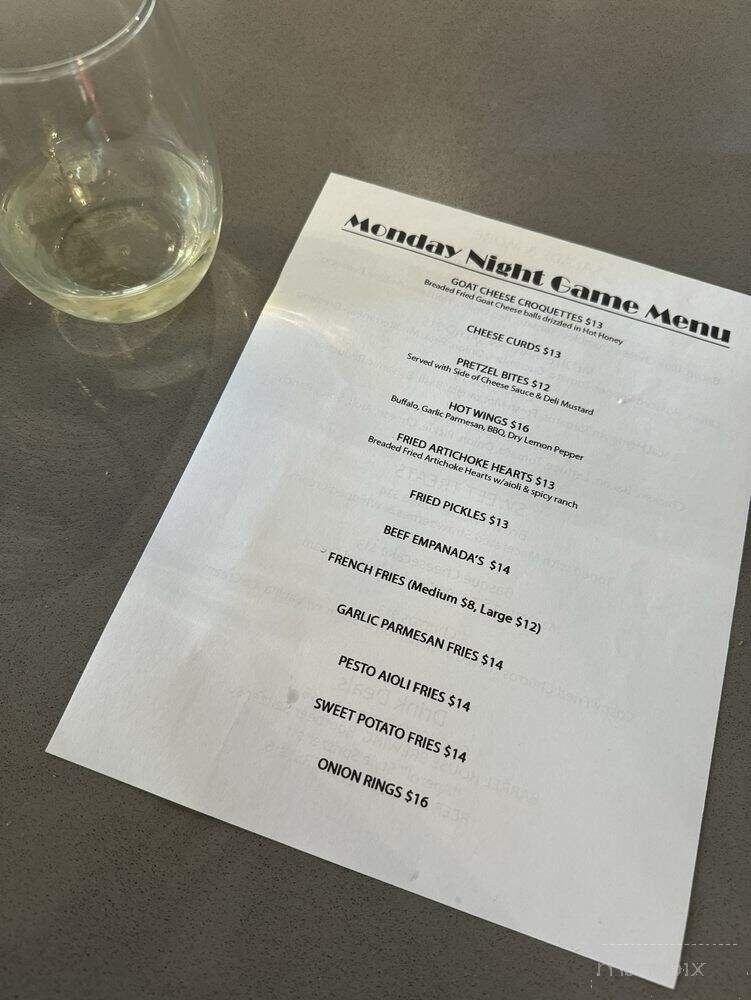 Monday Night Game Menu
GOAT CHEESE CROQUETTES $13
Breaded Fried Goat Cheese balls drizzled in Hot Honey
CHEESE CURDS $13
PRETZEL BITES $12
Served with Side of Cheese Sauce & Deli Mustard
HOT WINGS $16
Buffalo, Garlic Parmesan, BBQ, Dry Lemon Pepper
FRIED ARTICHOKE HEARTS $13
Breaded Fried Artichoke Hearts w/aioli & spicy ranch
FRIED PICKLES $13
BEEF EMPANADA'S $14
FRENCH FRIES (Medium $8, Large $12)
GARLIC PARMESAN FRIES $14
PESTO AIOLI FRIES $14
SWEET POTATO FRIES $14
ONION RINGS $16